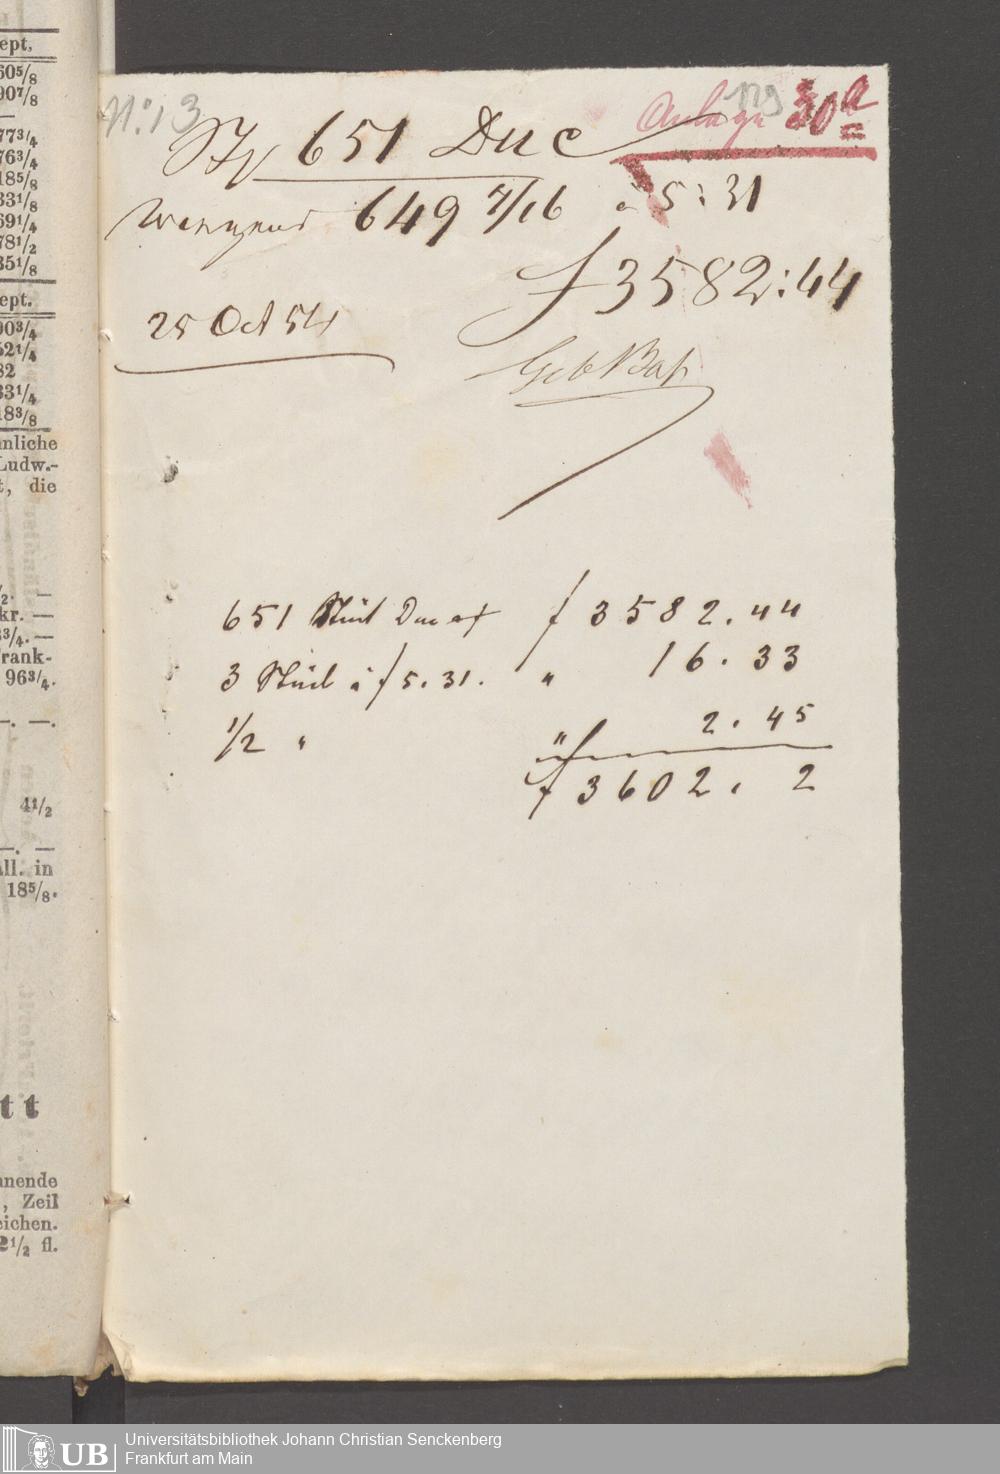 ept,
60 5/8
90 7/8
—
77 3/4
76 3/4
18 5/8
33 1/8
69 1/4
78 1/2
35 1/8
ept.
90 3/4
52 1/4
82
33 1/4
18 3/8
nnliche
Ludw.-
t, die
kr. —
3 3/4. —
rank-
96 3/4.
—. —.
4 1/2
—. —
All. in
18 5/8.
tt
nnende
, Zeil
eichen.
2 1/2 fl.
N: 13
129
Anlage 30 a
651 Duc
649 7/16 a 5:31
f 3582:44
25 Oct 54
Geb
651 Stück Ducat f 3582.44
3 Stück à f 5.31. " 16.33
1/2 " " 2.45
f 3602. 2
UB
Universitätsbibliothek Johann Christian Senckenberg
Frankfurt am Main